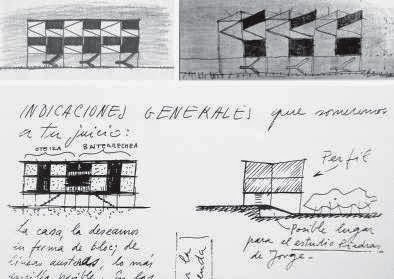 INDICACIONES GENERALES que sometemos
a tu juicio:
OTEIZA BASTERRECHEA
Perfil
La casa, la deseamos
en forma de bloc, de
líneas austeras, lo más
sencilla posible. En las
Posible lugar
para el estudio Piedras
de Jorge.